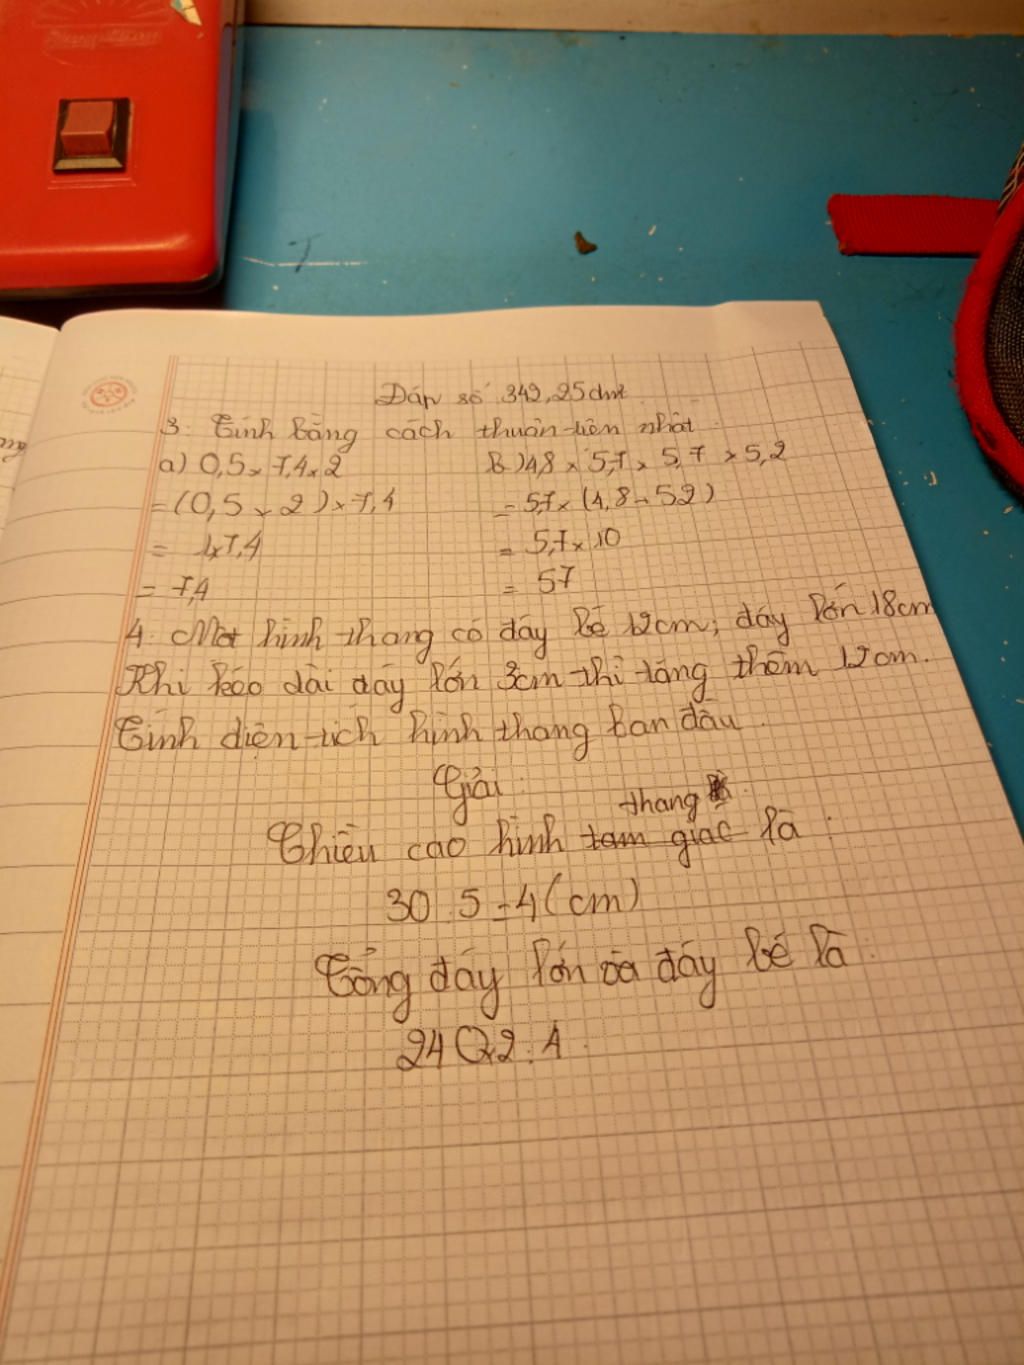 Đáp số 342,25cm²
3. Tính bằng cách thuận tiện nhất.
a) 0,5 × 7,4 × 2
= (0,5 × 2) × 7,4
= 1 × 7,4
= 7,4
b) 4,8 × 5,7 × 5,7 × 5,2
= 5,7 × (4,8 + 5,2)
= 5,7 × 10
= 57
4. Một hình thang có đáy bé 12cm; đáy lớn 18cm
Khi kéo dài đáy lớn 3cm thì tăng thêm 12cm.
Tính diện tích hình thang ban đầu.
Giải:
thang
Chiều cao hình tam giác là :
30 : 5 = 4 (cm)
Tổng đáy lớn và đáy bé là :
24 × 2 : 4